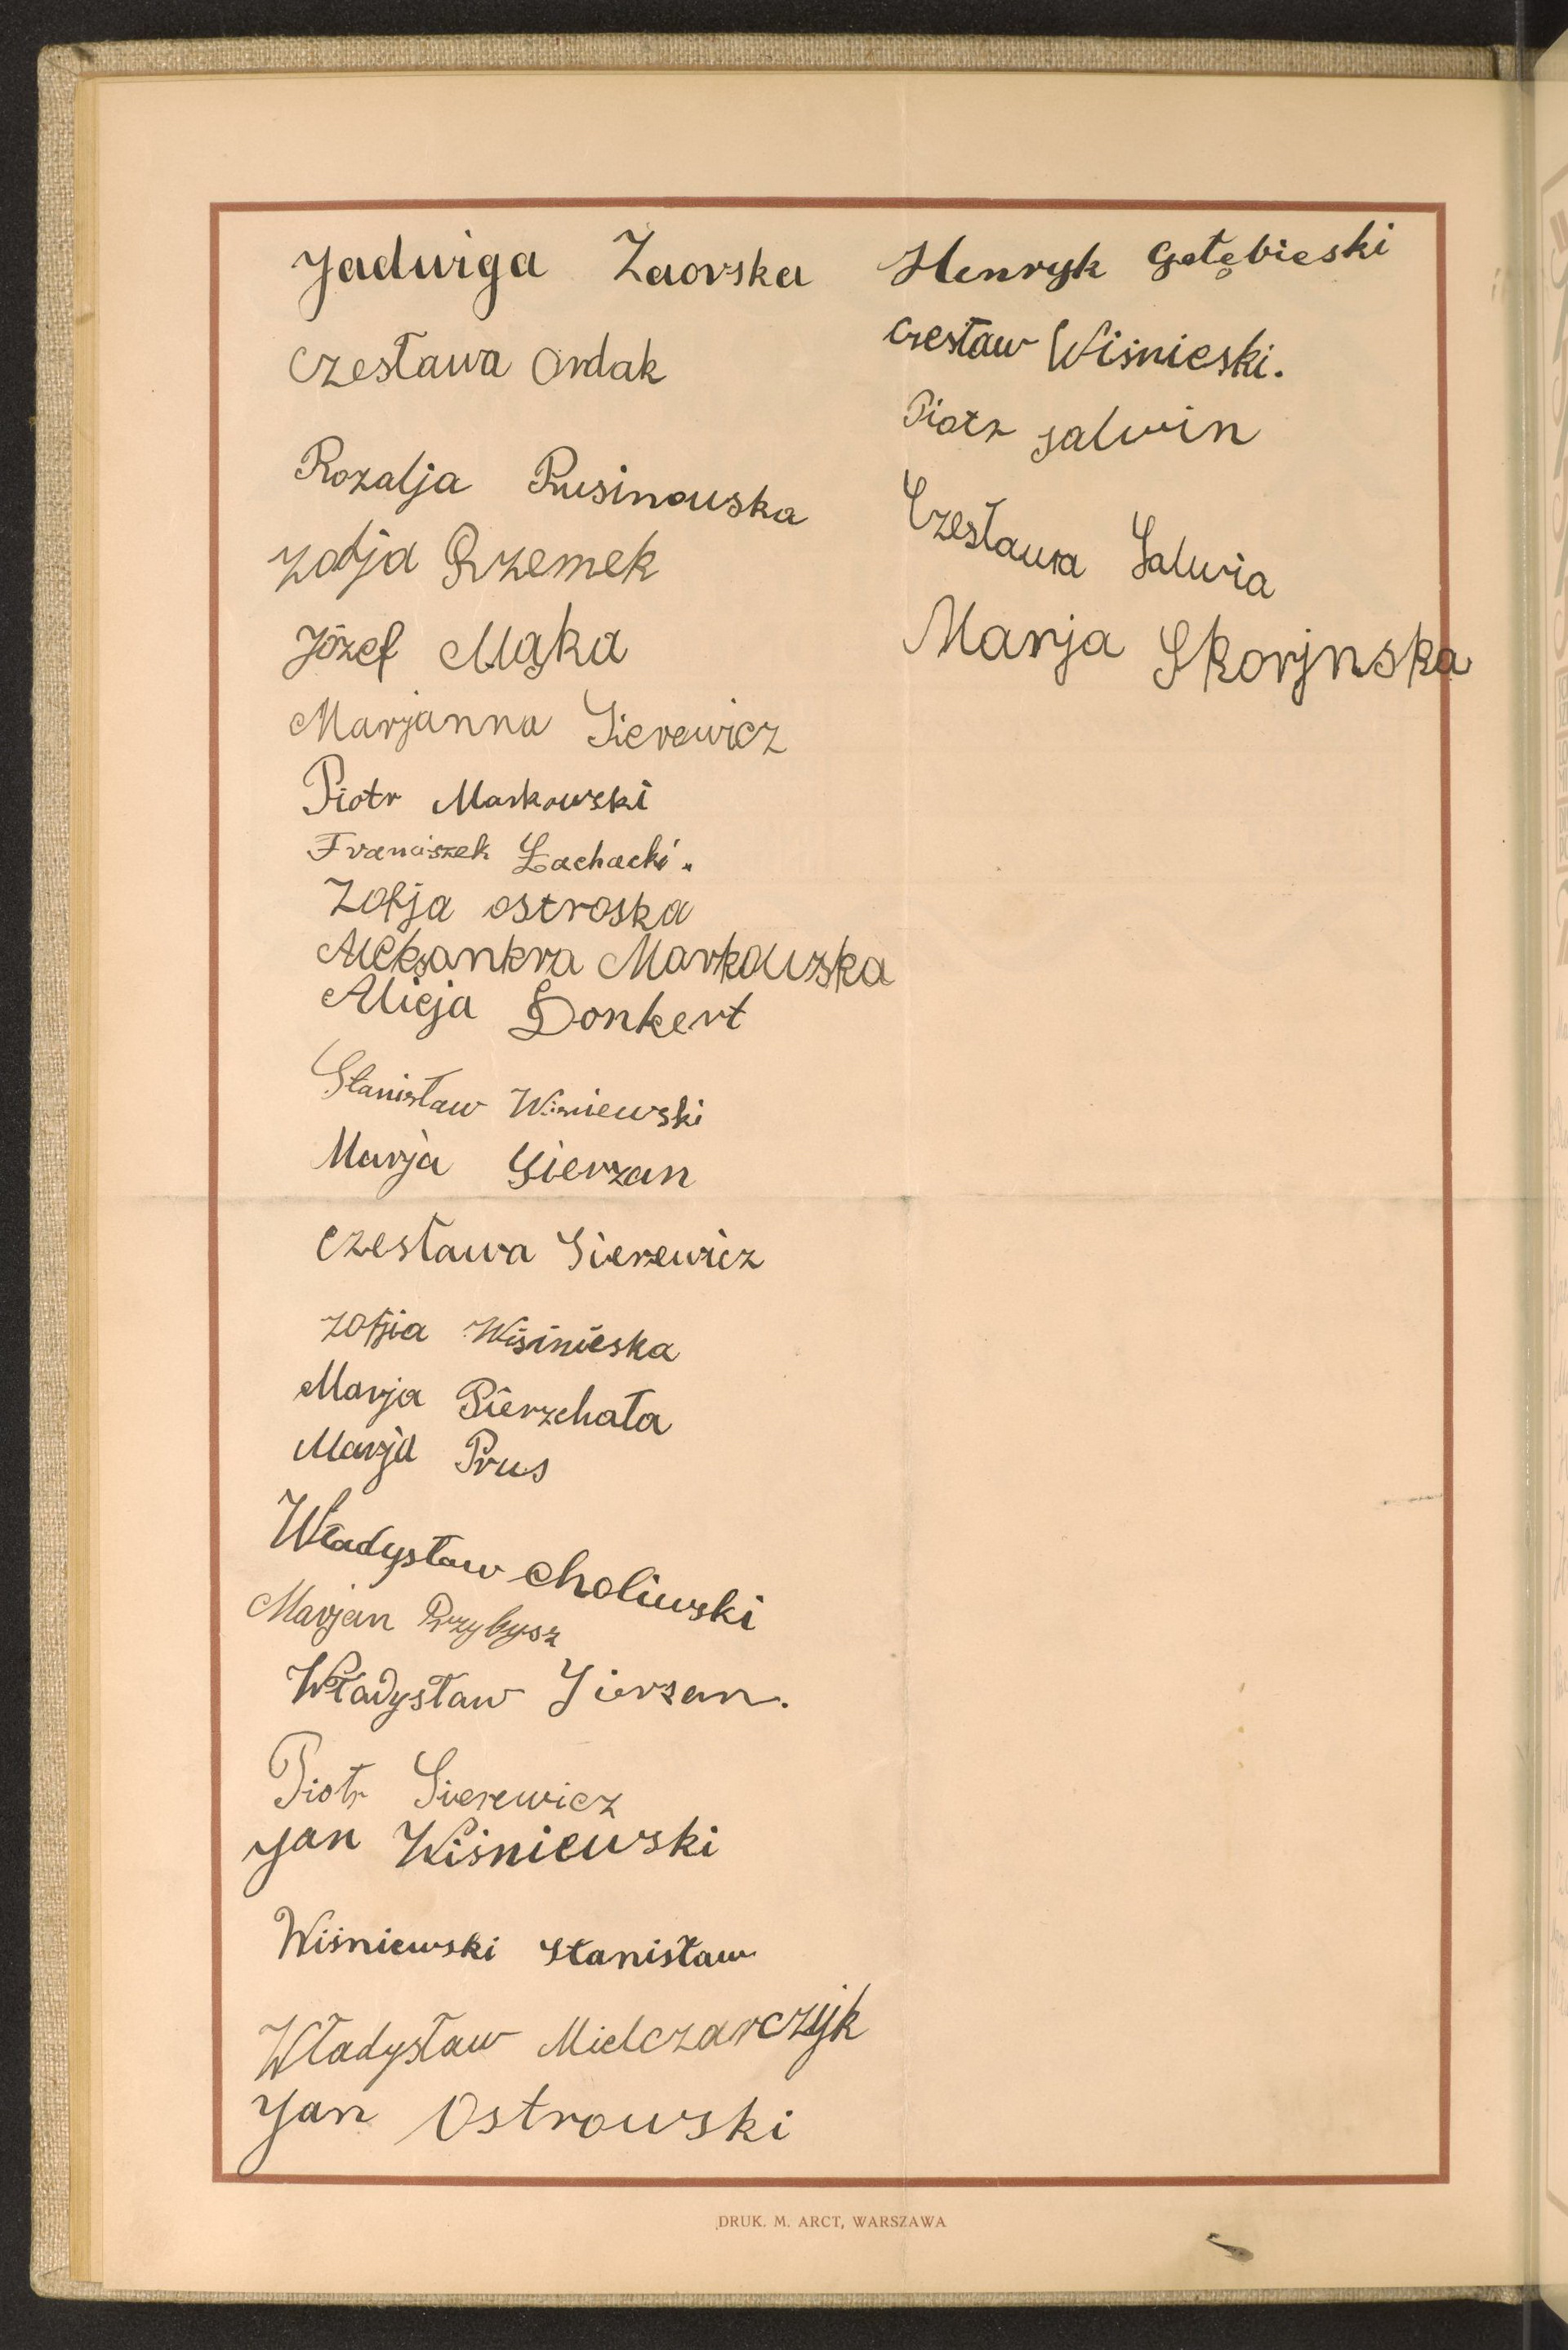 Jadwiga Zaorska
Czesława Ordak
Rozalja Rusinowska
Zofja Przemek
Józef Mąka
Marjanna Sierewicz
Piotr Markowski
Franciszek Łachacki.
Zofja ostroska
Aleksankra Markowska
Alicja Donkert
Stanisław Wiśniewski
Marja Sierzan
Czesława Sierewicz
Zofjia Wiśinieska
Marja Pierzchała
Marja Prus
Władysław Choliwski
Marjan Przybysz
Władysław Sierzan.
Piotr Sierewicz
Jan Wiśniewski
Wiśniewski Stanisław
Władysław Mielczarczyk
Jan Ostrowski
Henryk Gołębieski
Czesław Wiśnieski.
Piotr Salwin
Czesława Salwia
Marja Skorjnska
DRUK. M. ARCT, WARSZAWA